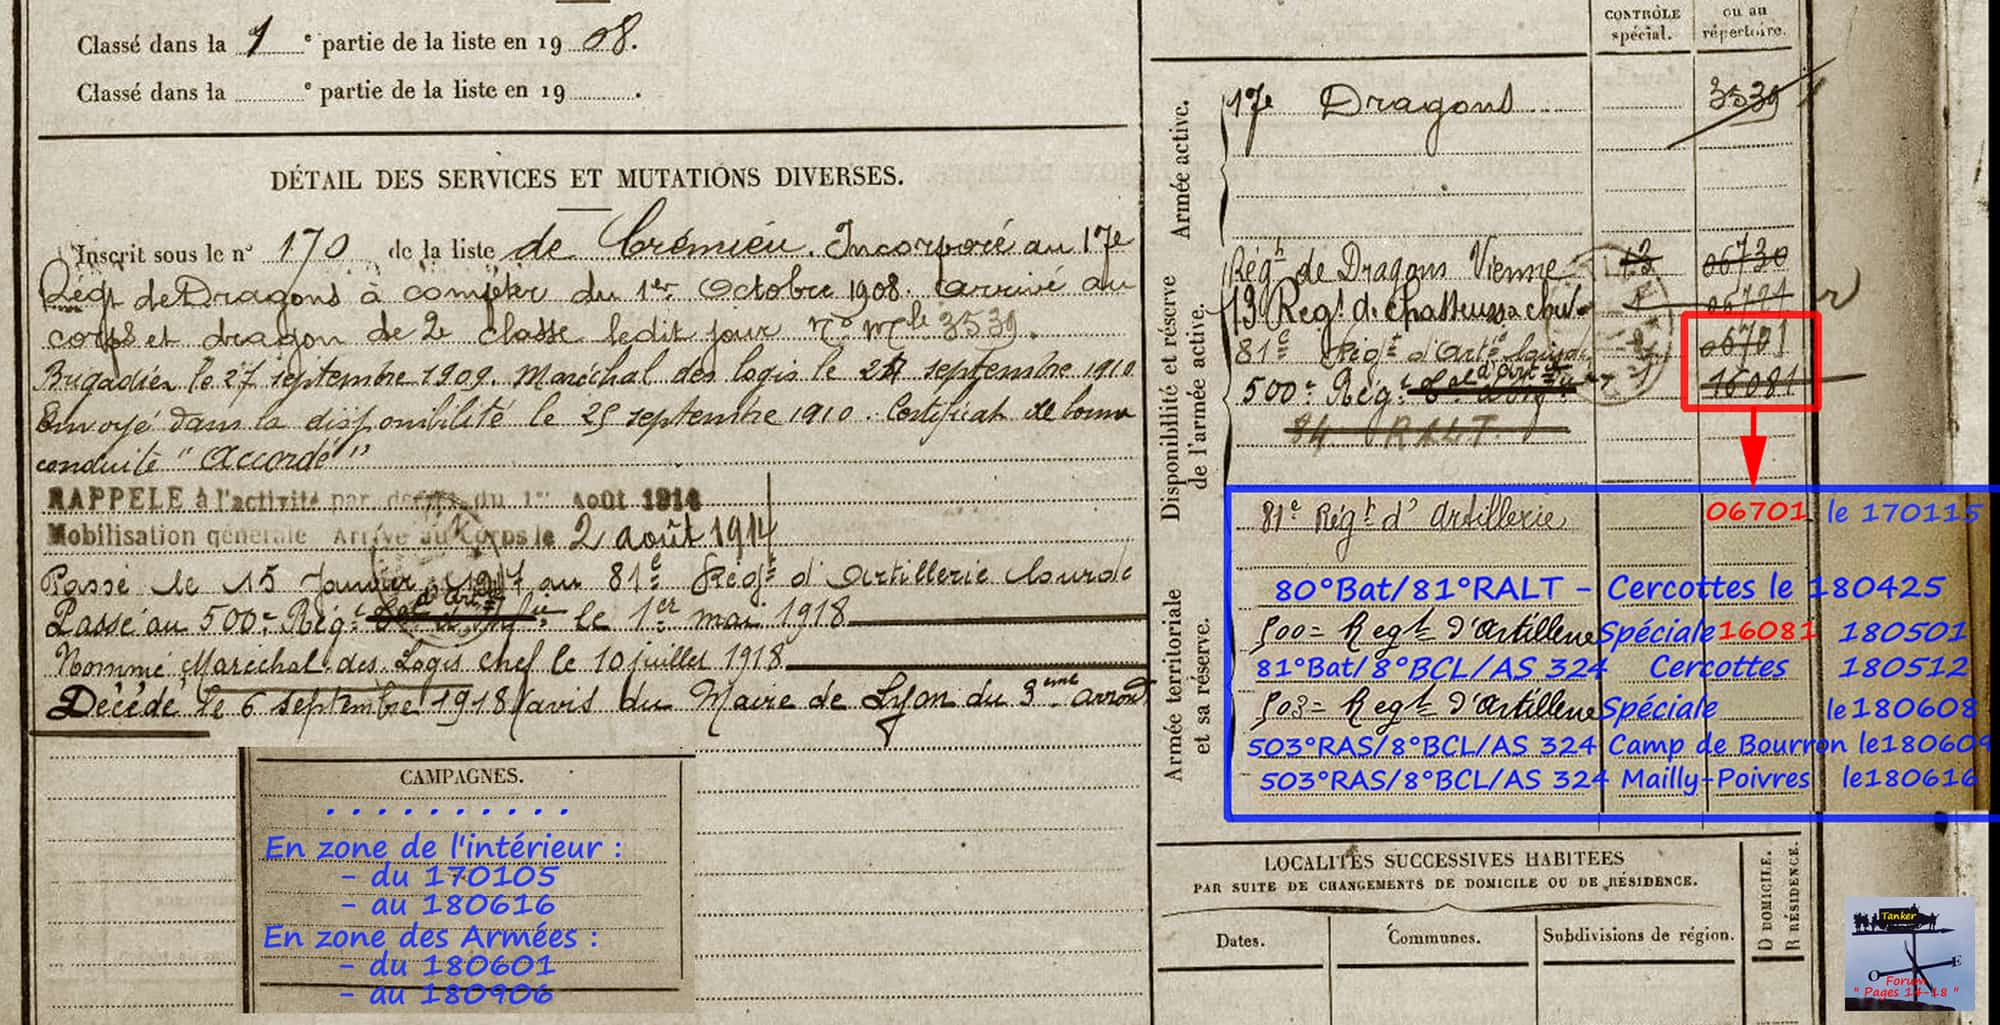 Classé dans la 1 e partie de la liste en 19 08.
Classé dans la e partie de la liste en 19 .
DÉTAIL DES SERVICES ET MUTATIONS DIVERSES.
Inscrit sous le n° 170 de la liste de Crémieu. Incorporé au 17e
Régt de Dragons à compter du 1er Octobre 1908. Arrivé au
corps et dragon de 2e classe ledit jour no mle 3539.
Brigadier le 27 septembre 1909. Maréchal des logis le 24 septembre 1910
Envoyé dans la disponibilité le 25 septembre 1910. Certificat de bonne
conduite "Accordé"
RAPPELE à l'activité par décret du 1er Août 1914
Mobilisation générale Arrivé au Corps le 2 août 1914
Passé le 15 Janvier 1917 au 81e Régt d'Artillerie lourde
Passé au 500e Régt d'Art le 1er mai 1918
Nommé Maréchal des Logis chef le 10 juillet 1918
Décédé le 6 septembre 1918 (avis du Maire de Lyon du 3ème arrondt
CAMPAGNES.
. . . . . . . . . .
En zone de l'intérieur :
- du 170105
- au 180616
En zone des Armées :
- du 180601
- au 180906
CONTRÔLE spécial.
ou au répertoire.
Armée active.
17e Dragons 3539
Disponibilité et réserve de l'armée active.
Régt de Dragons Vienne 13 06730
13 Regt de chasseurs a cheval 06721
81e Régt d'Artie lourde 06701
500e Régt d'Art 16081
84 RALT.
Armée territoriale et sa réserve.
81e Régt d'Artillerie 06701 le 170115
80°Bat/81°RALT - Cercottes le 180425
500e Regt d'Artillerie Spéciale 16081 180501
81°Bat/8°BCL/AS 324 Cercottes 180512
503e Regt d'Artillerie Spéciale le 180608
503°RAS/8°BCL/AS 324 Camp de Bourron le 180609
503°RAS/8°BCL/AS 324 Mailly-Poivres le 180616
LOCALITÉS SUCCESSIVES HABITÉES
PAR SUITE DE CHANGEMENTS DE DOMICILE OU DE RÉSIDENCE.
Dates. Communes. Subdivisions de région.
D DOMICILE.
R RÉSIDENCE.
Tanker
O E
Forum
" Pages 14-18 "